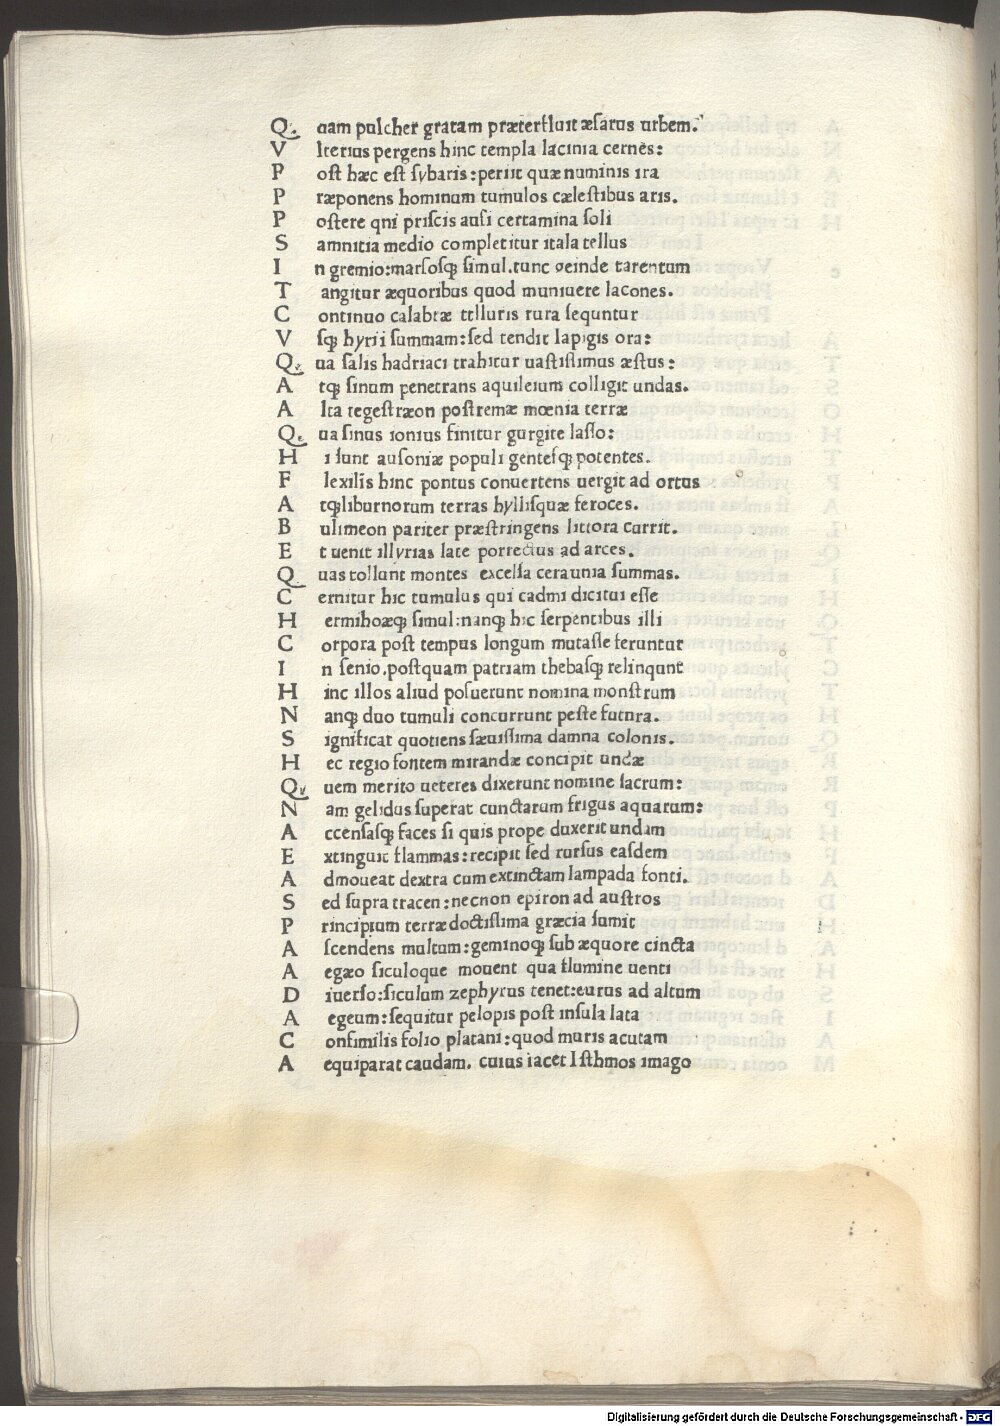 Quam pulcher gratam præterfluit æsarus urbem.
Vlterius pergens hinc templa lacinia cernes:
Post hæc est sybaris: periit quæ numinis ira
Præponens hominum tumulos cælestibus aris.
Postere qni priscis ausi certamina soli
Samnitia medio completitur itala tellus
In gremio: marsosq; simul. tunc deinde tarentum
Tangitur æquoribus quod muniuere lacones.
Continuo calabræ telluris rura sequntur
Vsq; hyrii summam: sed tendit Iapigis ora:
Qua salis hadriaci trahitur uastissimus æstus:
Atq; sinum penetrans aquileium colligit undas.
Alta tegestræon postremæ mœnia terræ
Qua sinus ionius finitur gurgite lasso:
Hi sunt ausoniæ populi gentesq; potentes.
Flexilis hinc pontus conuertens uergit ad ortus
Atq; liburnorum terras hyllisquæ feroces.
Bulimeon pariter præstringens littora currit.
Et uenit illyrias late porrectus ad arces.
Quas tollunt montes excelsa ceraunia summas.
Cernitur hic tumulus qui cadmi dicitui esse
Hermihoæq; simul: nanq; hic serpentibus illi
Corpora post tempus longum mutasse feruntur
In senio. postquam patriam thebasq; relinqunt
Hinc illos aliud posuerunt nomina monstrum
Nanq; duo tumuli concurrunt peste futura.
Significat quotiens sæuissima damna colonis.
Hec regio fontem mirandæ concipit undæ
Quem merito ueteres dixerunt nomine sacrum:
Nam gelidus superat cunctarum frigus aquarum:
Accensasq; faces si quis prope duxerit undam
Extinguit flammas: recipit sed rursus easdem
Admoueat dextra cum extinctam lampada fonti.
Sed supra tracen: necnon epiron ad austros
Principium terræ doctissima græcia sumit
Ascendens multum: geminoq; sub æquore cincta
Aegæo siculoque mouent qua flumine uenti
Diuerso: siculum zephyrus tenet: eurus ad altum
Aegeum: sequitur pelopis post insula lata
Consimilis folio platani: quod muris acutam
Aequiparat caudam. cuius iacet Isthmos imago
Digitalisierung gefördert durch die Deutsche Forschungsgemeinschaft - DFG